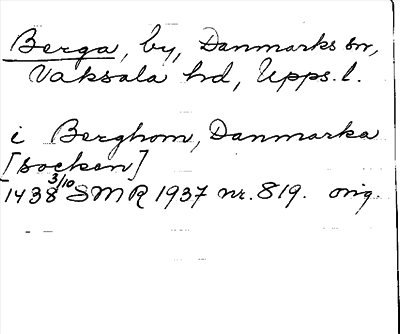 Berga, by, Danmarks sn,
Vaksala hd, Upps. l.
i Berghom, Danmarka
[socken]
1438 3/10 SMR 1937 nr. 819. orig.